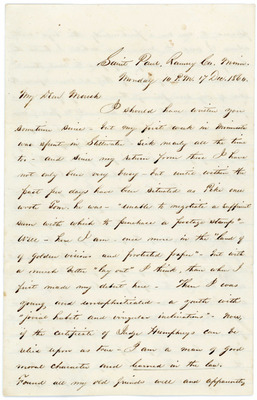 Saint Paul, Ramsey Co. Minn.
Monday 10 P.M. 17 Dec. 1860.
My Dear
I should have written you
sometime since - but my first week in Minnesota
was spent in Stillwater - Sick nearly all the time
too - and since my return from there I have
not only been very busy - but until within the
past few days have been situated as Pike once
wrote Tom, he was - "unable to negotiate a sufficient
sum with which to purchase a postage stamp" -
Well - here I am - once more in the "land of
of golden visions and protested paper" - but with
a much better "lay out" I think, than when I
first made my debut here - Then I was
young, and unsophisticated - a youth with
"jovial habits and singular inclinations" - Now,
if the certificate of Judge Humphreys can be
relied upon as true - I am a man of good
moral character and learned in the law.
Found all my old friends well and apparently